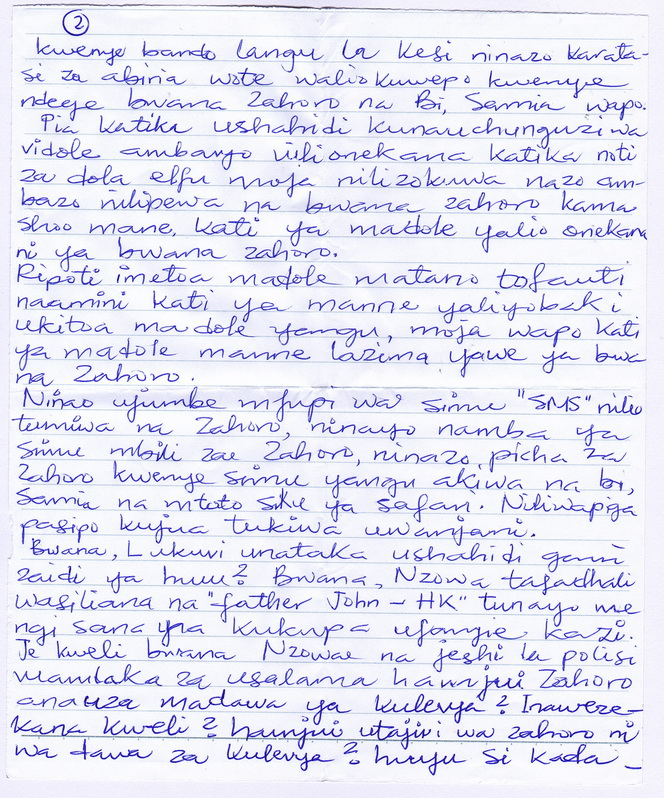 2
kwenye bando langu la kesi ninazo karata-
si za abiria wote walio kuwepo kwenye
ndege bwana Zahoro na Bi, Samia wapo.
Pia katika ushahidi kunauchunguzi wa
vidole ambavyo vilionekana katika noti
za dola elfu moja nilizokuwa nazo am-
bazo nilipewa na bwana zahoro kama
shoo mane, kati ya madole yalio onekana
ni ya bwana zahoro.
Ripoti imetoa madole matano tofauti
naamini kati ya manne yaliyobaki
ukitoa madole yangu, moja wapo kati
ya madole manne lazima yawe ya bwa
na Zahoro.
Ninao ujumbe mfupi wa simu "SMS" nilio
tumiwa na Zahoro, ninayo namba ya
simu mbili za Zahoro, ninazo picha za
Zahoro kwenye simu yangu akiwa na bi,
Samia na mtoto siku ya safari. Niliwapiga
pasipo kujua tukiwa uwanjani.
Bwana, Lukuvi unataka ushahidi gani
zaidi ya huu? Bwana, Nzowa tafadhali
wasiliana na "father John - HK" tunayo me
ngi sana ya kukupa ufanyie kazi.
Je kweli bwana Nzowa na jeshi la polisi
mamlaka za usalama hawajui Zahoro
anauza madawa ya kulevya? Inaweze-
kana kweli? hamjui utajiri wa zahoro ni
wa dawa za kulevya? huyu si kada -